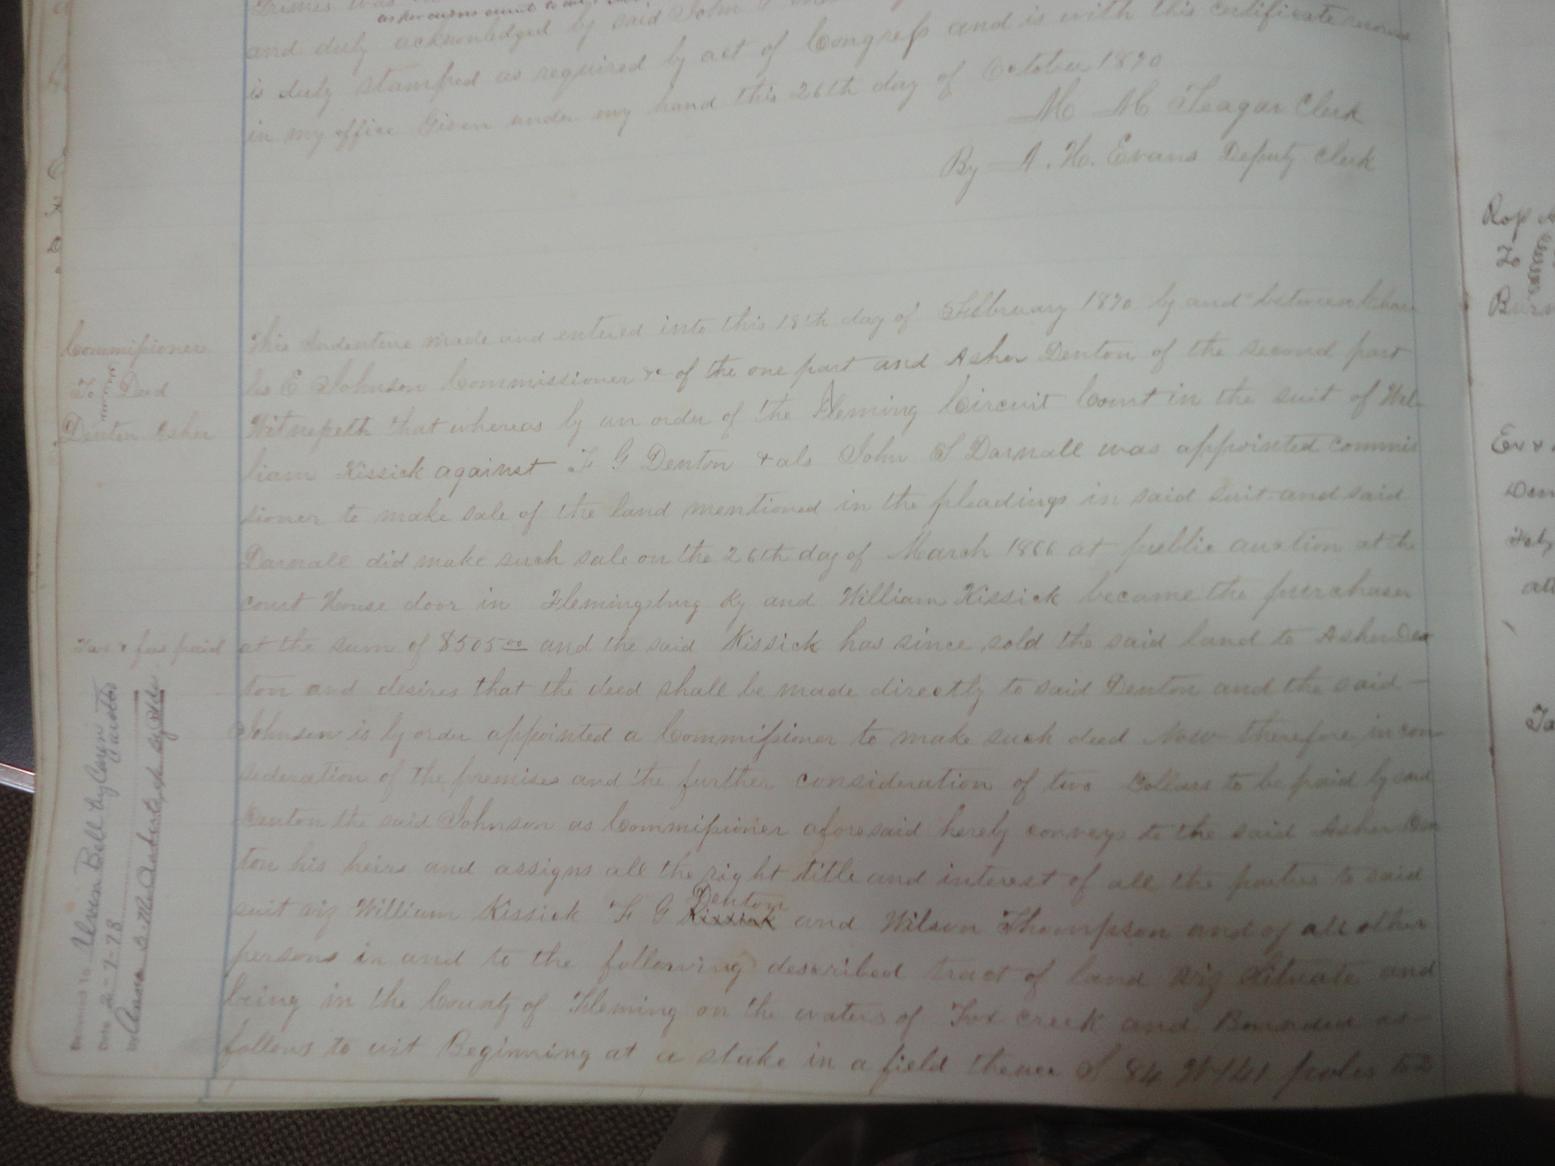 and duly acknowledged by said John
is duly stamped as required by act of Congress and is with this certificate
in my office Given under my hand this 26th day of October 1870
M M Teagar Clerk
By A. H. Evans Deputy Clerk
Commissioner
To Deed
Denton Asher
This Indenture made and entered into this 18th day of February 1870 by and between Char
les E Johnson Commissioner &c of the one part and Asher Denton of the second part
Witnesseth that whereas by an order of the Fleming Circuit Court in the suit of Wil
liam Kissick against F G Denton & als John S Darnall was appointed commis
sioner to make sale of the land mentioned in the pleadings in said suit and said
Darnall did make such sale on the 26th day of March 1866 at public auction at the
court House door in Flemingsburg Ky and William Kissick became the purchaser
Tax & fees paid
at the sum of $505.00 and the said Kissick has since sold the said land to Asher Den
ton and desires that the deed shall be made directly to said Denton and the said
Johnson is by order appointed a Commissioner to make such deed Now therefore in con
sideration of the premises and the further consideration of two Dollars to be paid by said
Denton the said Johnson as Commissioner aforesaid hereby conveys to the said Asher Den
ton his heirs and assigns all the right title and interest of all the parties to said
suit viz William Kissick F G Kissick Denton and Wilson Thompson and of all other
persons in and to the following described tract of land viz Situate and
being in the County of Fleming on the waters of Fox creek and Bounded as
follows to wit Beginning at a stake in a field thence S 84 W 141 poles to
Delivered to Alvin Bell
Date 2-7-78
By
Ross
To
Ex